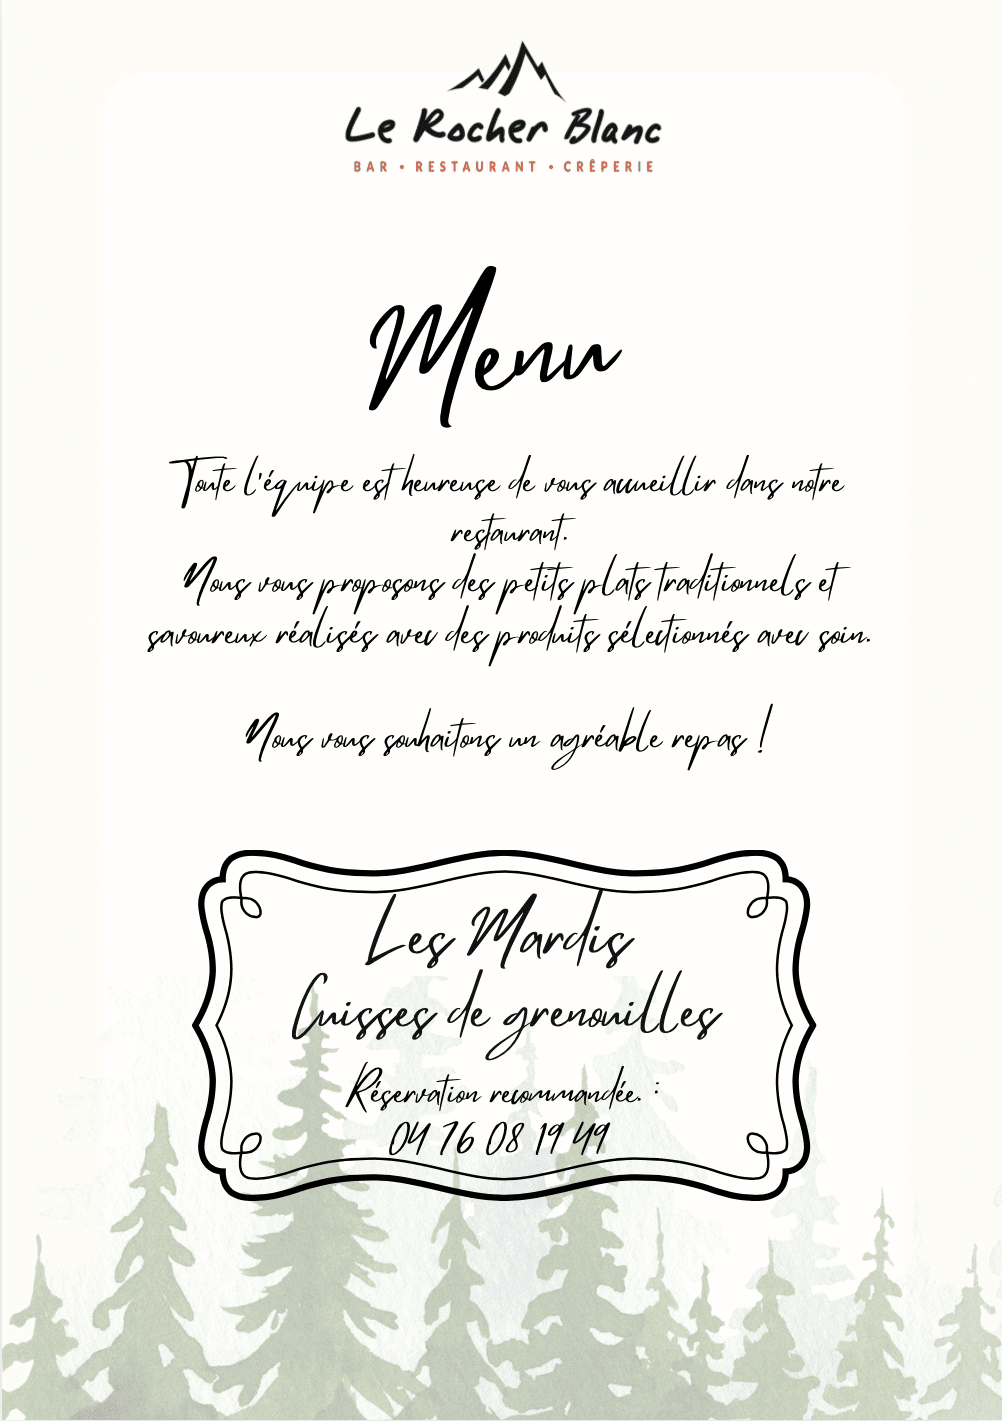 Le Rocher Blanc
BAR • RESTAURANT • CRÊPERIE
Menu
Toute l'équipe est heureuse de vous accueillir dans notre
restaurant.
Nous vous proposons des petits plats traditionnels et
savoureux réalisés avec des produits sélectionnés avec soin.
Nous vous souhaitons un agréable repas !
Les Mardis
Cuisses de grenouilles
Réservation recommandée. :
04 76 08 19 49